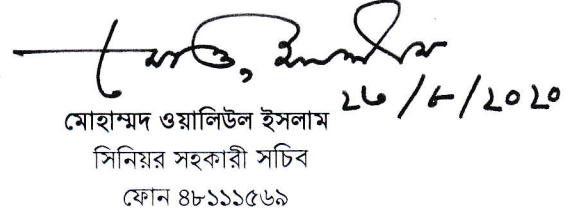 ২৬/৮/২০২০
মোহাম্মদ ওয়ালিউল ইসলাম
সিনিয়র সহকারী সচিব
ফোন ৪৮১১১৫৬৯